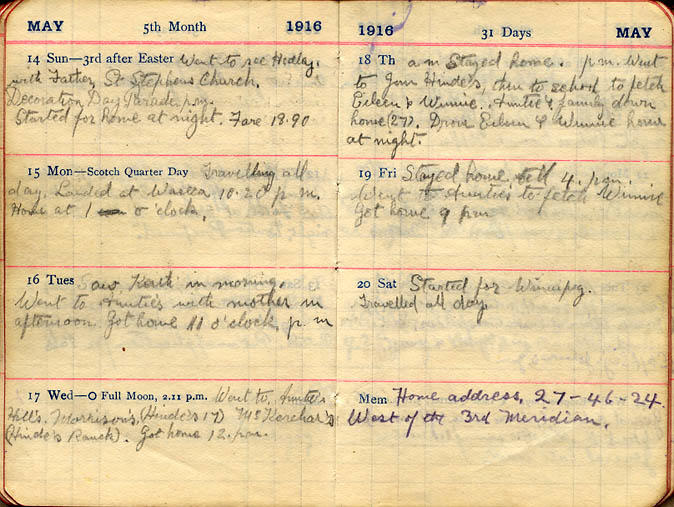 MAY 5th Month 1916
14 Sun—3rd after Easter Went to see Hedley
with Father, St Stephens Church.
Decoration Day Parade p.m.
Started for home at night. Fare 18.90
15 Mon—Scotch Quarter Day Travelling all
day. Landed at Waseca 10.20 p.m.
Home at 1 o'clock.
16 Tues Saw Keith in morning.
Went to Aunties with mother in
afternoon. Got home 11 o'clock p.m
17 Wed—O Full Moon, 2.11 p.m. Went to Auntie's
Hill's, Morrison's, (Hinde's 17) McKerchar's
(Hinde's Ranch). Got home 12. p.m.
1916 31 Days MAY
18 Th a m Stayed home. p.m. Went
to Jim Hinde's, then to school to fetch
Eileen & Winnie. Auntie & family down
home (27). Drove Eileen & Winnie home
at night.
19 Fri Stayed home till 4. p.m.
Went to Aunties to fetch Winnie
Got home 9 p.m
20 Sat Started for Winnipeg.
Travelled all day
Mem Home address, 27-46-24
West of the 3rd Meridian.